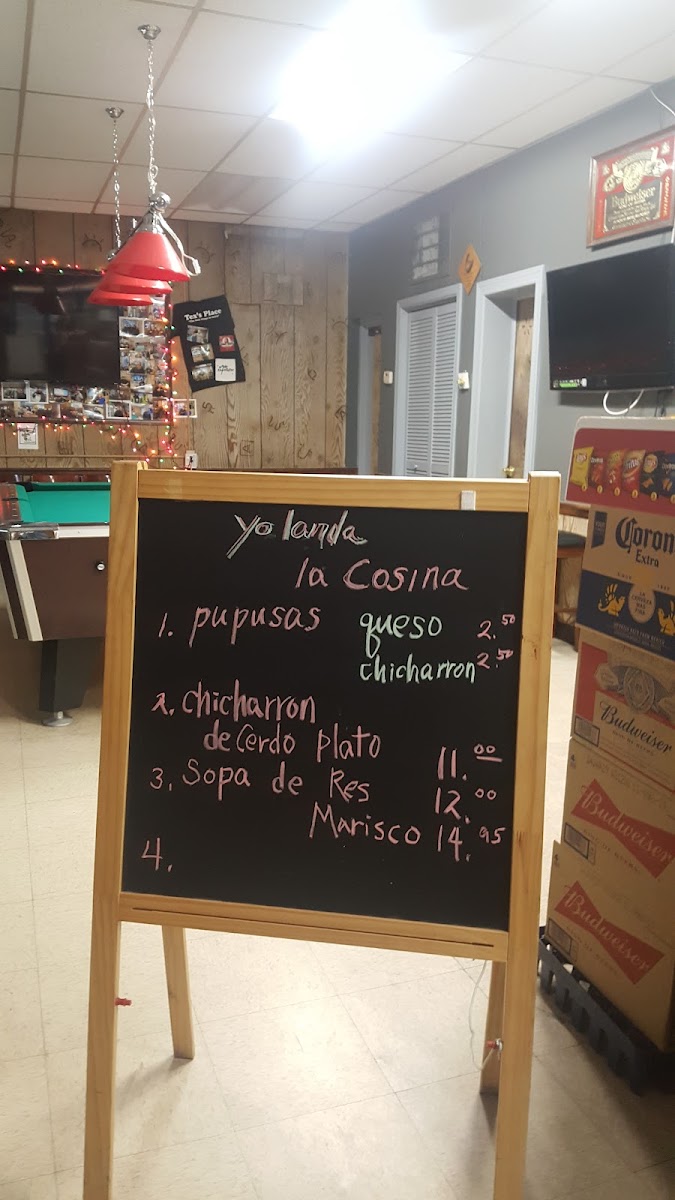 Yolanda
la Cosina
1. pupusas queso 2.50
chicharron 2.50
2. chicharron
de Cerdo plato 11.00
3. Sopa de Res 12.00
Marisco 14.95
4.
Tex's Place
Budweiser
Corona
Extra
Budweiser
Budweiser
Budweiser